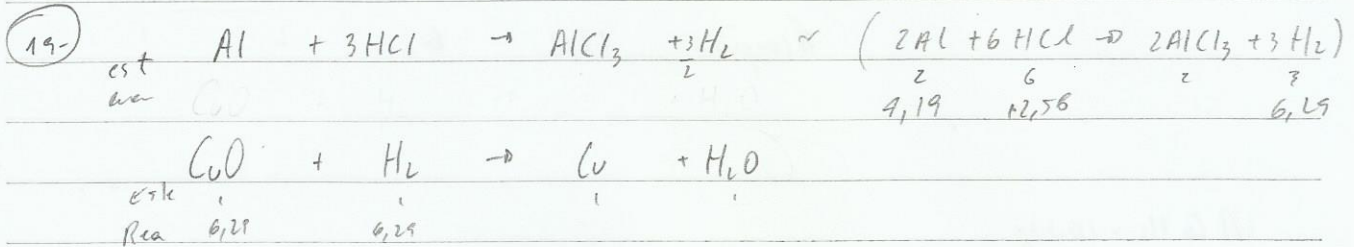 19- Al + 3HCl → AlCl₃ + 3/2 H₂ ~ (2Al + 6HCl → 2AlCl₃ + 3H₂)
est 2 6 2 3
4,19 12,56 6,29
CuO + H₂ → Cu + H₂O
Esk 1 1 1 1
Rea 6,29 6,29